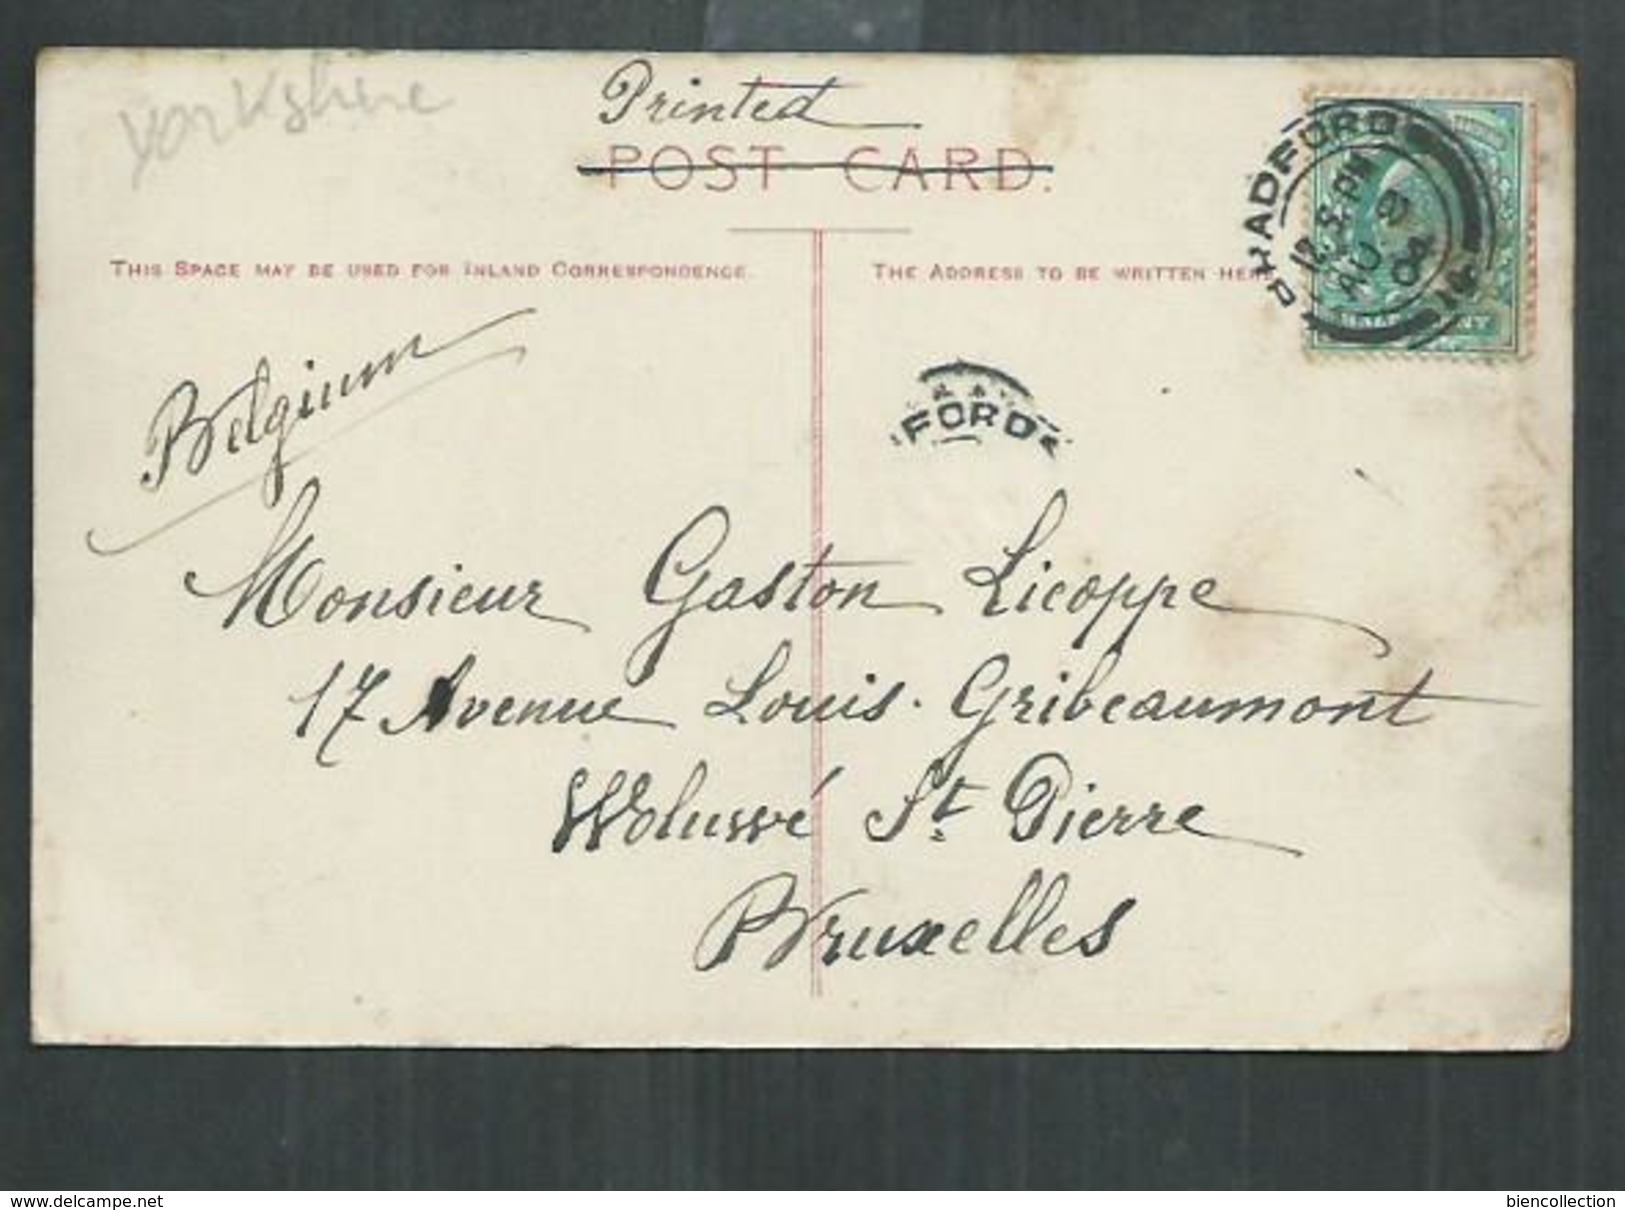 Yorkshire
Printed
POST CARD.
THIS SPACE MAY BE USED FOR INLAND CORRESPONDENCE.
THE ADDRESS TO BE WRITTEN HERE
BRADFORD
AU
04
Belgium
FORD
Monsieur Gaston Licoppe
17 Avenue Louis. Gribeaumont
Woluwé St. Pierre
Bruxelles
www.delcampe.net
biencollection